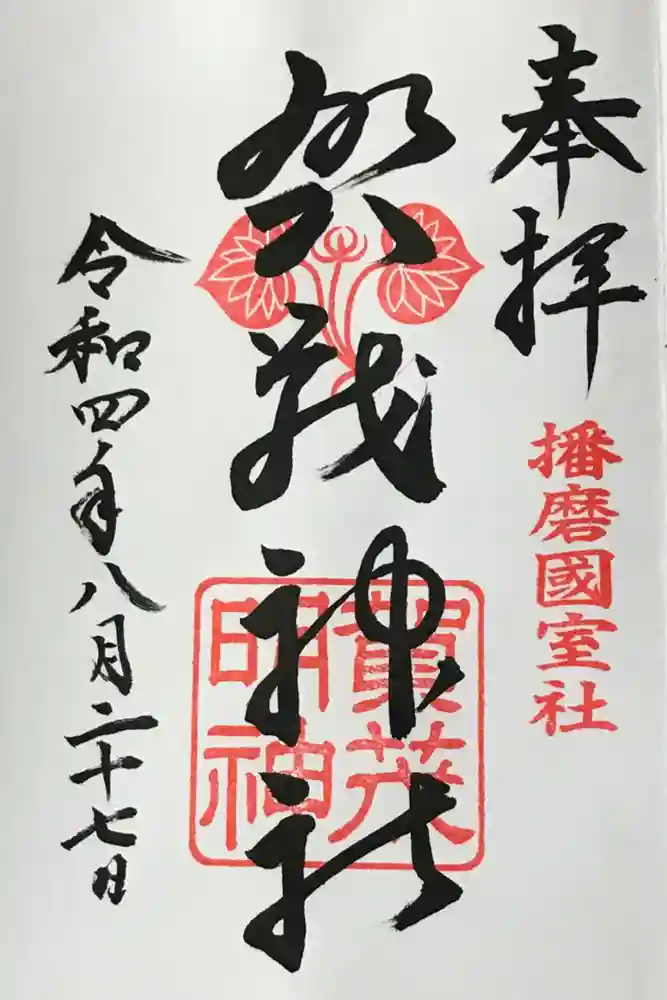 奉拝
播磨國室社
賀茂神社
賀茂
明神
令和四年八月二十七日